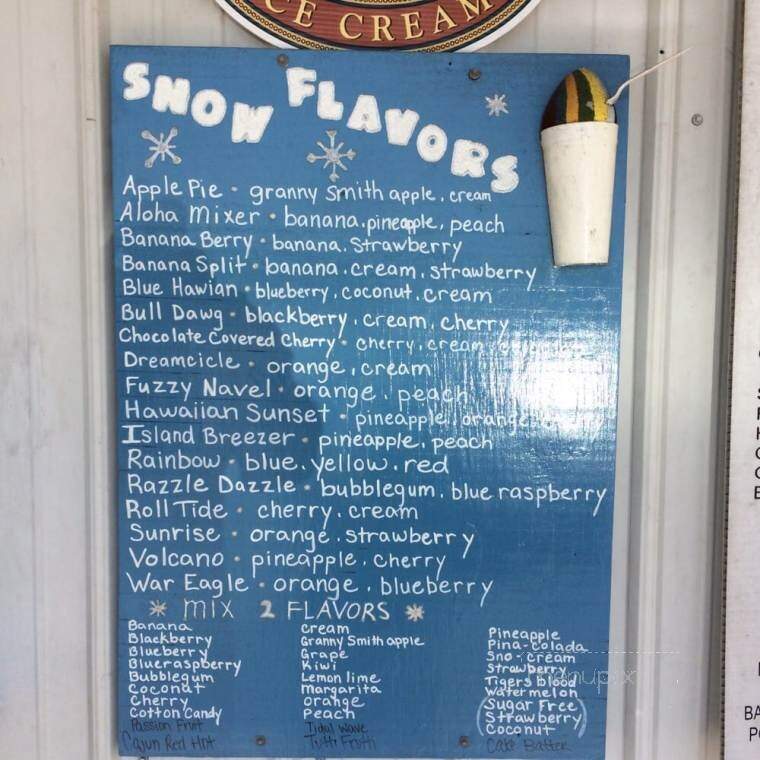 ICE CREAM
SNOW FLAVORS
Apple Pie • granny smith apple, cream
Aloha Mixer • banana, pineapple, peach
Banana Berry • banana, strawberry
Banana Split • banana, cream, strawberry
Blue Hawian • blueberry, coconut, cream
Bull Dawg • blackberry, cream, cherry
Chocolate Covered Cherry • cherry, cream,
Dreamcicle • orange, cream
Fuzzy Navel • orange, peach
Hawaiian Sunset • pineapple, orange
Island Breezer • pineapple, peach
Rainbow • blue, yellow, red
Razzle Dazzle • bubblegum, blue raspberry
Roll Tide • cherry, cream
Sunrise • orange, strawberry
Volcano • pineapple, cherry
War Eagle • orange, blueberry
MIX 2 FLAVORS
Banana
Blackberry
Blueberry
Blueraspberry
Bubblegum
Coconut
Cherry
Cotton Candy
Passion Fruit
Cajun Red Hot
cream
Granny Smith apple
Grape
Kiwi
Lemon lime
Margarita
orange
Peach
Tidal Wave
Tutti Frutti
Pineapple
Pina-colada
Sno-cream
Strawberry
Tigers blood
Watermelon
(Sugar Free
Strawberry
Coconut)
Cake Batter
menupix